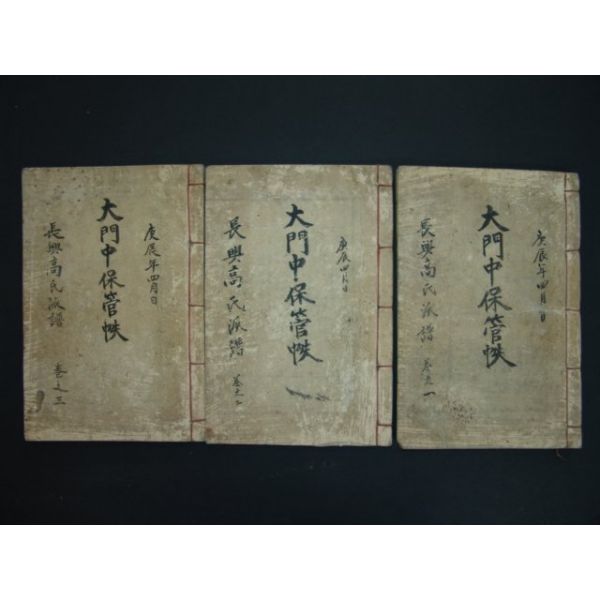 庚辰年四月日
大門中保管帙
長興高氏派譜 卷之一
庚辰四月日
大門中保管帙
長興高氏派譜 卷之二
庚辰年四月日
大門中保管帙
長興高氏派譜 卷之三